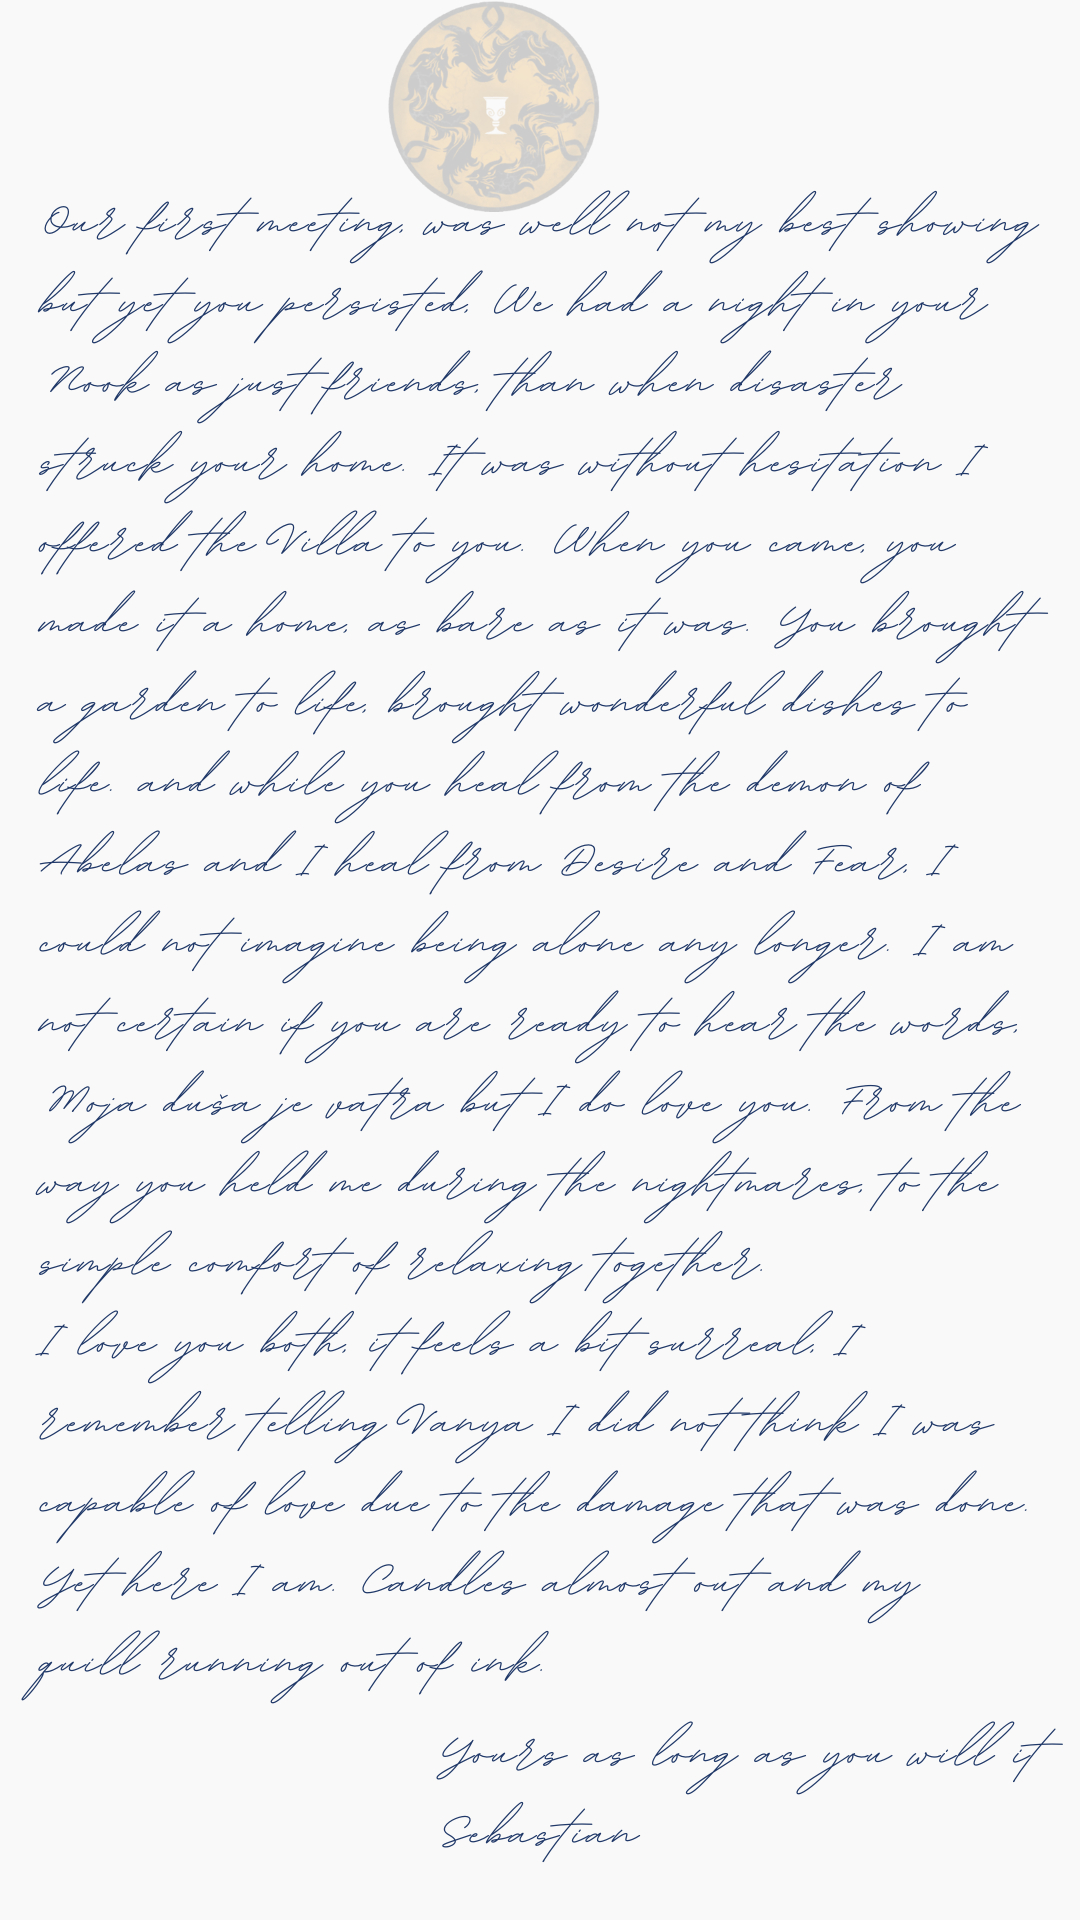 Our first meeting, was well not my best showing
but yet you persisted, We had a night in your
Nook as just friends, than when disaster
struck your home. It was without hesitation I
offered the Villa to you. When you came, you
made it a home, as bare as it was. You brought
a garden to life, brought wonderful dishes to
life. and while you heal from the demon of
Abelas and I heal from Desire and Fear, I
could not imagine being alone any longer. I am
not certain if you are ready to hear the words,
Moja duša je vatra but I do love you. From the
way you held me during the nightmares, to the
simple comfort of relaxing together.
I love you both, it feels a bit surreal, I
remember telling Vanya I did not think I was
capable of love due to the damage that was done.
Yet here I am. Candles almost out and my
quill running out of ink.
Yours as long as you will it
Sebastian